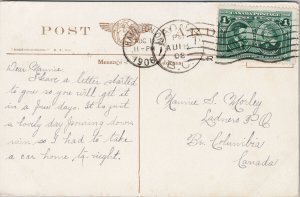 POST
CANADA POSTAGE
11-PM
1908
PM
08
Message
Dear Mannie.
I have a letter started
to you so you will get it
in a few days. It is just
a lovely day pouring down
rain so I had to take
a car home to-night.
Mannie S. Morley
Ladners P.O.
Br. Columbia
Canada